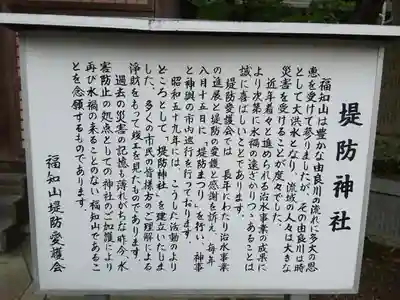 堤防神社
福知山は豊かな由良川の流れに多大の恩
恵を受けて参りましたが、その由良川は時
として大洪水となり、流域の人々は大きな
災害を受けることが度々でした。
近年着々と進められる治水事業の成果に
より次第に水禍の遠ざかりつゝあることは
誠に喜ばしいことであります。
堤防愛護会では、長年にわたり治水事業
の進展と堤防の愛護と感謝を訴え、毎年
八月十五日に「堤防まつり」を行い、神事
と神輿の市内巡行を行っております。
昭和五十九年には、こうした活動のより
どころとして、「堤防神社」を建立いたしま
した。多くの市民の皆様方のご理解による
浄財をもって竣工を見たものであります。
過去の災害の記憶も薄れがちな昨今、水
害防止の処点としての神社のご加護により
再び水禍の来ることのない福知山であるこ
とを念願するものであります。
福知山堤防愛護会